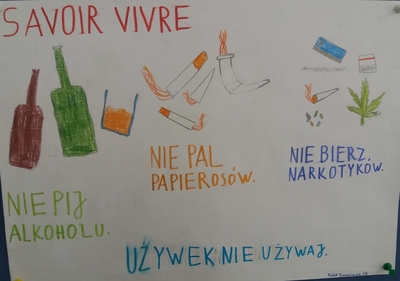 SAVOIR VIVRE
NIE PIJ
ALKOHOLU.
NIE PAL
PAPIEROSÓW.
NIE BIERZ,
NARKOTYKÓW.
UŻYWEK NIE UŻYWAJ.